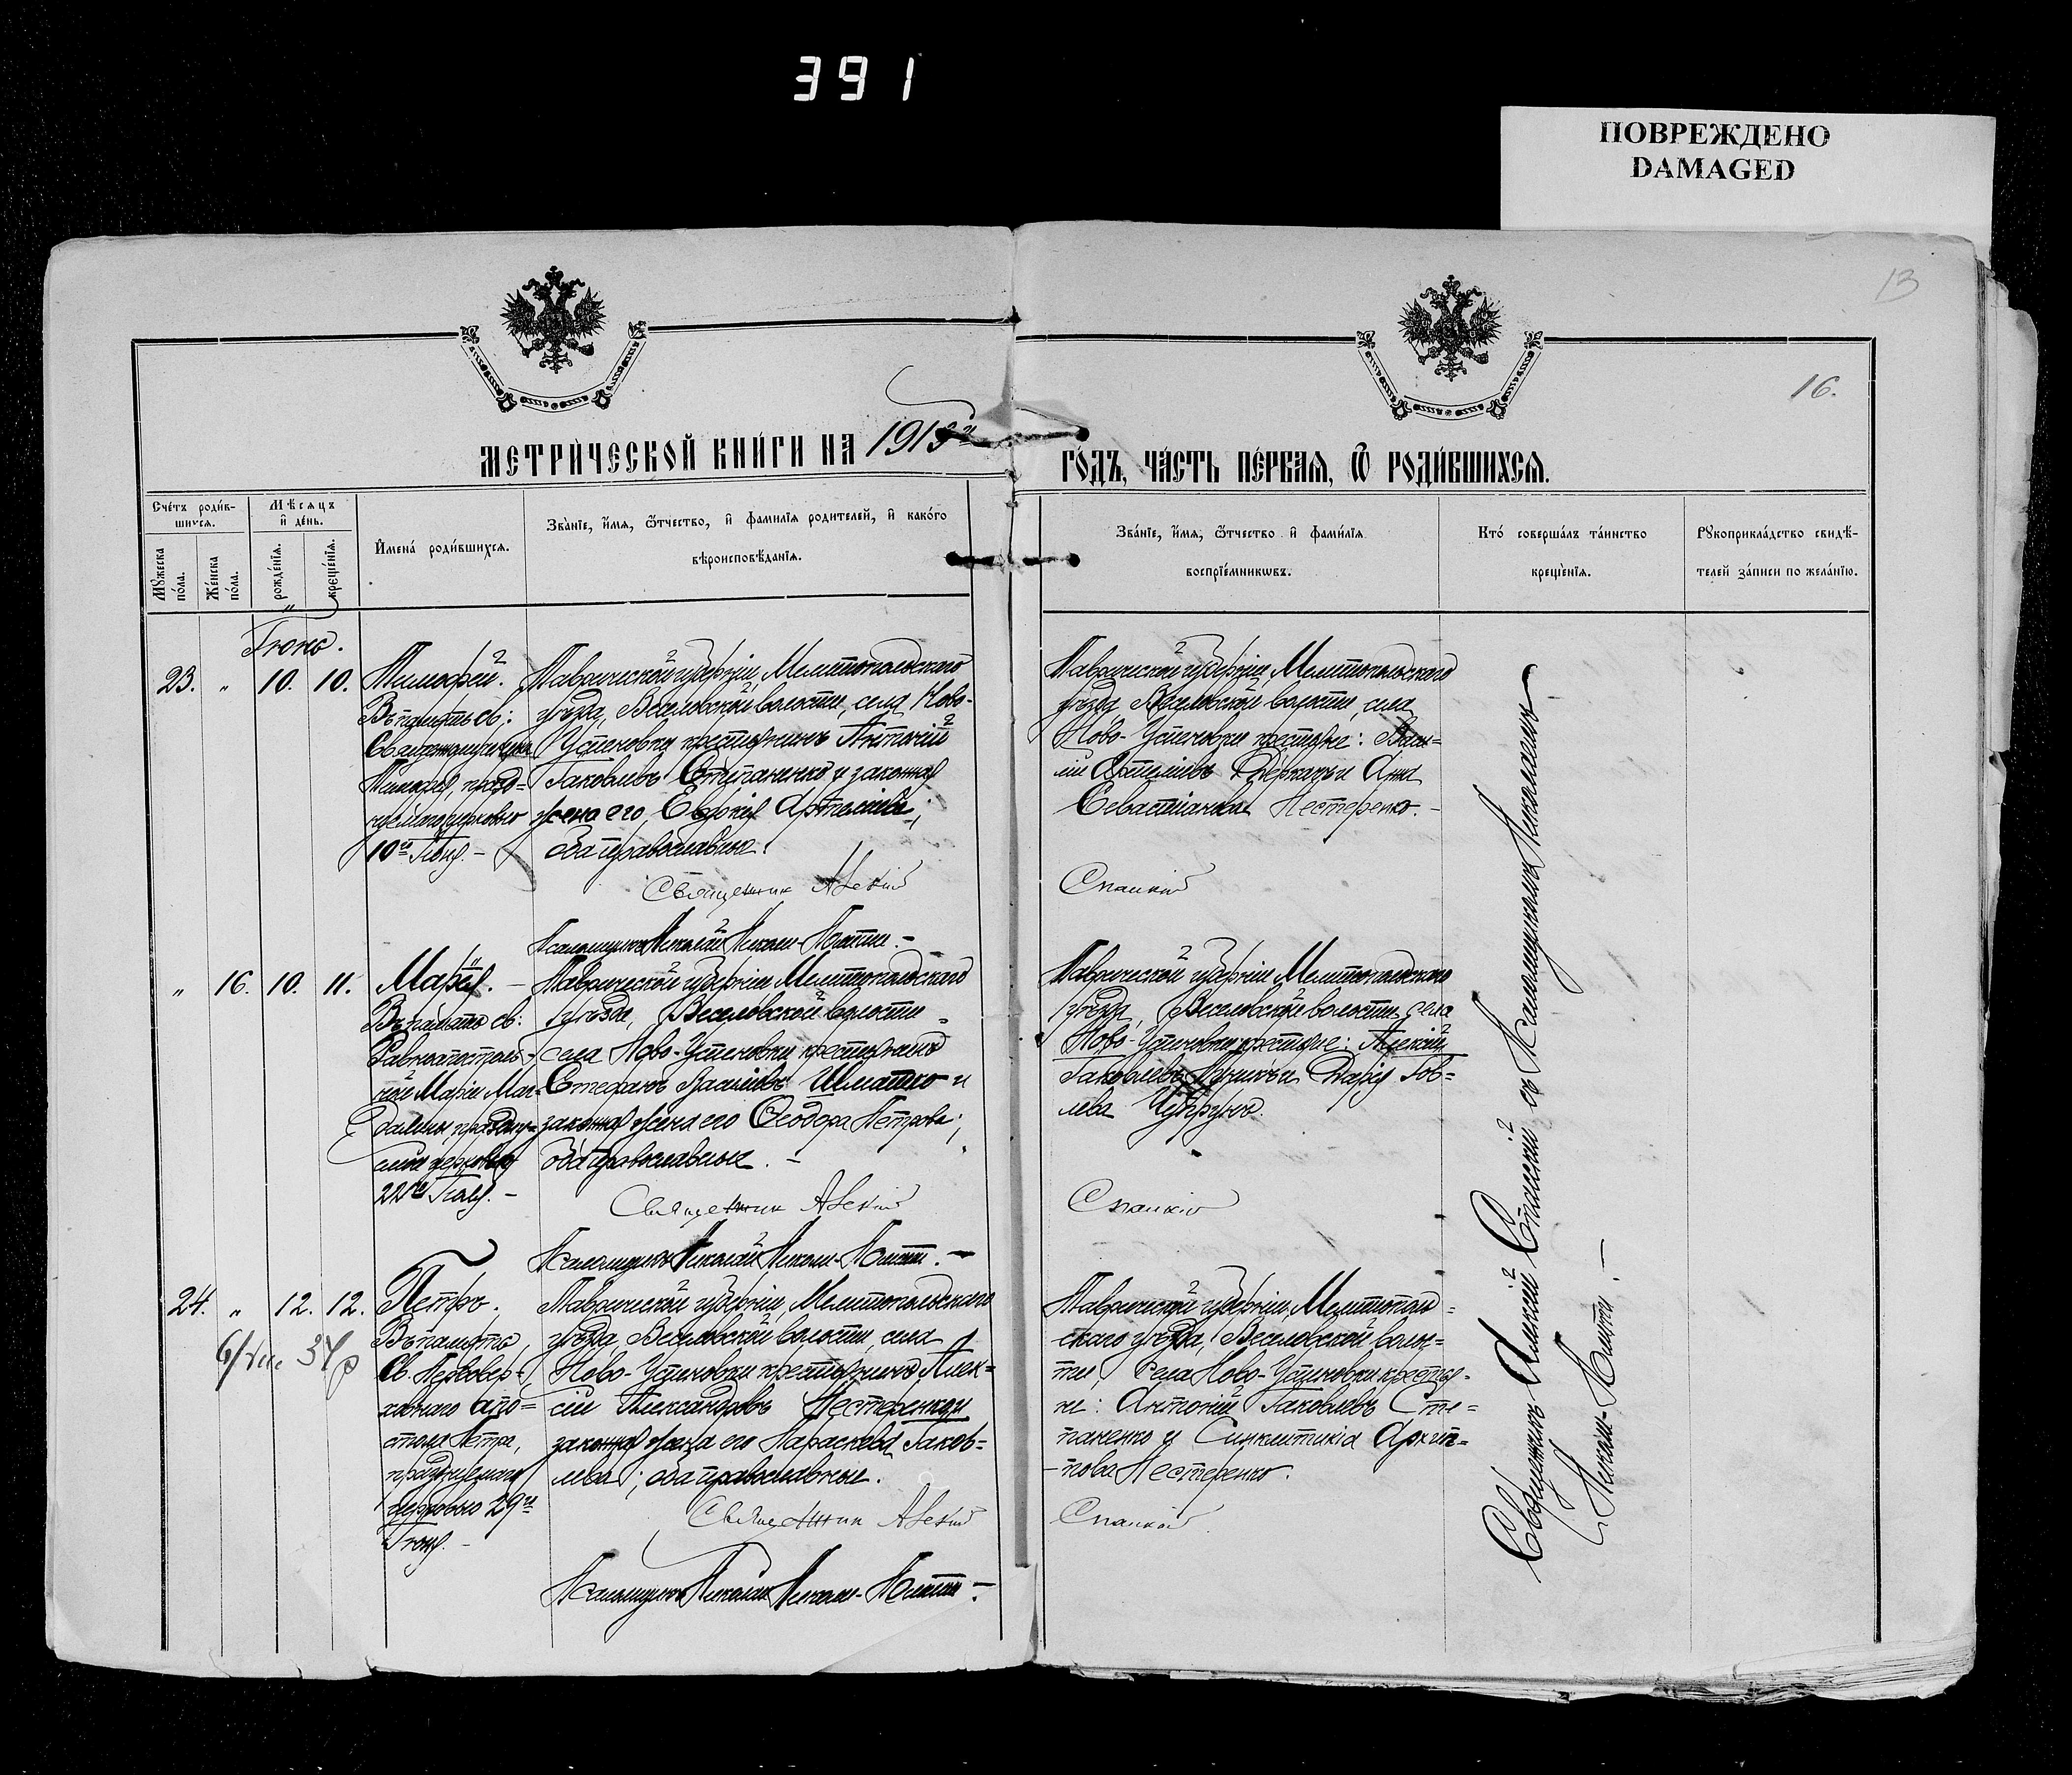 391
ПОВРЕЖДЕНО
DAMAGED
13
16.
МЕТРИЧЕСКОЙ КНИГИ НА 1913 г
ГОДЪ, ЧАСТЬ ПЕРВАЯ, Ѿ РОДИВШИХСЯ.
Счетъ родив-
шихся.
Мѣсяцъ
и день.
Мужеска
пола.
Женска
пола.
рожденія.
крещенія.
Имена родившихся.
Званіе, имя, ѿтчество, и фамилія родителей, и какого
вѣроисповѣданія.
Званіе, имя, ѿтчество и фамилія
воспріемниковъ.
Кто совершалъ таинство
крещенія.
Рукоприкладство свидѣ-
телей записи по желанію.
Іюнь.
23. " 10. 10.
Тимофей.
Въ память св:
Тимофея, праздн=
10го Іюня. -
Таврической губерніи Мелитопольскаго
уѣзда, Веселовской волости, села Ново-
Успеновки крестьянинъ Антоній
Іаковлевъ Степаненко и законная
жена его Евдокія Артеміева;
оба православные.
Священник Алексій
Псаломщикъ Николай
Таврической губерніи Мелитопольскаго
уѣзда Веселовской волости, села
Ново-Успеновки крестьяне: Васи=
лій Артеміевъ Деркачъ и Анна
Севастіанова Нестеренко. -
Спасскій
" 16. 10. 11.
Марія. -
Въ память св:
Равноапостоль-
ной Маріи Маг-
далины, праздну=
емой церковью
22го Іюля. -
Таврической губерніи Мелитопольскаго
уѣзда, Веселовской волости
села Ново-Успеновки крестьянинъ
Стефанъ Васильевъ Шматко и
законная жена его Ѳеодора Петрова;
оба православные. -
Священник Алексій
Псаломщикъ Николай
Таврической губерніи Мелитопольскаго
уѣзда, Веселовской волости села
Ново-Успеновки крестьяне: Алексій
Іаковлевъ и Дарія Іов=
лева Чупрунъ.
Спасскій
24. " 12. 12.
Петръ.
Въ память
Св. Первовер-
ховнаго апо=
стола Петра,
празднуемаго
церковью 29го
Іюня. -
Таврической губерніи, Мелитопольскаго
уѣзда Веселовской волости, села
Ново-Успеновки крестьянинъ Алек=
сій Александровъ Нестеренко и
законная жена его Параскева Іаков=
лева; оба православные.
Священник Алексій
Псаломщикъ Николай
Таврической губерніи, Мелитополь=
скаго уѣзда, Веселовской волос=
ти, села Ново-Успеновки крестья-
не: Антоній Іаковлевъ Сте=
паненко и Синклитикія Архип=
пова Нестеренко.
Спасскій
Священникъ Алексій Спасскій съ Псаломщикомъ Николаемъ